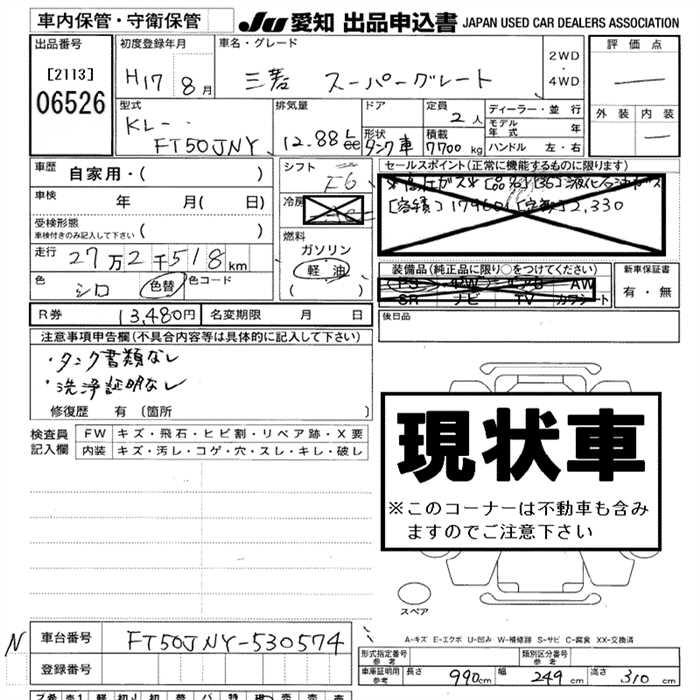 車内保管・守衛保管 JU 愛知 出品申込書 JAPAN USED CAR DEALERS ASSOCIATION
出品番号 初度登録年月 車名・グレード 評価点
[2113] H17 8月 三菱 スーパーグレート 2WD・4WD
06526
型式 排気量 ドア 定員 ディーラー・並行 外装 内装
KL-・ FT50JNY 12.88 2人 モデル年式 年
形状 タンク車 積載 7700kg ハンドル 左・右
車歴 自家用・( ) シフト F6 セールスポイント(正常に機能するものに限ります)
車検 年 月( 日) 冷房
[容積] 17960 2,330
受検形態 車検付きのみ記入して下さい ( ) 燃料
走行 27万2千518km ガソリン 軽・油 ( )
装備品(純正品に限り○をつけてください) 新車保証書
色 シロ 色替 色コード PS AW 有・無
SR ナビ TV カワシート
R券 13,480円 名変期限 月 日 後日品
注意事項申告欄(不具合内容等は具体的に記入して下さい)
・タンク書類なし
・洗浄証明なし
修復歴 有 〔箇所 〕
検査員記入欄 FW キズ・飛石・ヒビ割・リペア跡・X要
内装 キズ・汚し・コゲ・穴・スレ・キレ・破し
現状車
※このコーナーは不動車も含み
ますのでご注意下さい
スペア
A-キズ E-エクボ U-凹み W-補修跡 S-サビ C-腐食 XX-交換済
N 車台番号 FT50JNY-530574
登録番号
形式指定番号 参考 類別区分番号 参考
車庫証明用 参考 長さ 990cm 幅 249cm 高さ 310cm